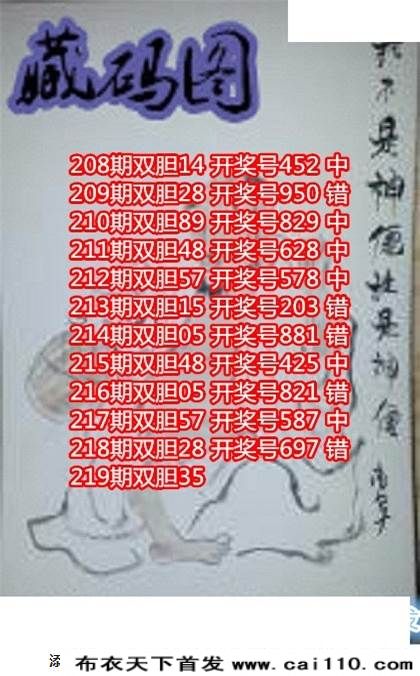 藏码图
208期双胆14 开奖号452 中
209期双胆28 开奖号950 错
210期双胆89 开奖号829 中
211期双胆48 开奖号628 中
212期双胆57 开奖号578 中
213期双胆15 开奖号203 错
214期双胆05 开奖号881 错
215期双胆48 开奖号425 中
216期双胆05 开奖号821 错
217期双胆57 开奖号587 中
218期双胆28 开奖号697 错
219期双胆35
不是神仙 是神仙
布衣天下首发 www.cai110.com